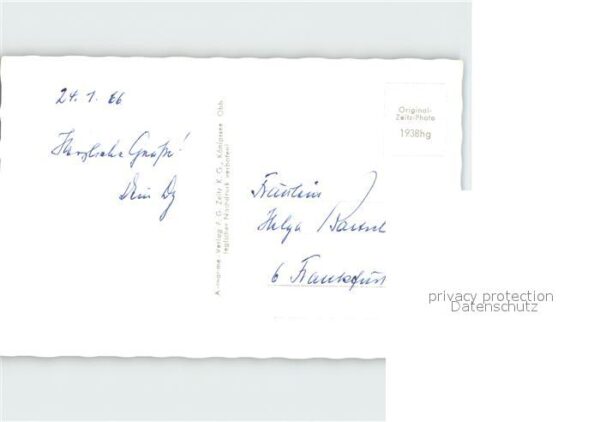 24. 1. 66
Herzliche Grüße!
Dein
Ansichtskarten Verlag F. G. Zeitz K. G., Königssee Obb.
jeglicher Nachdruck verboten!
Original-
Zeitz-Photo
1938hg
Fräulein
Helga
6 Frankfur
privacy protection
Datenschutz